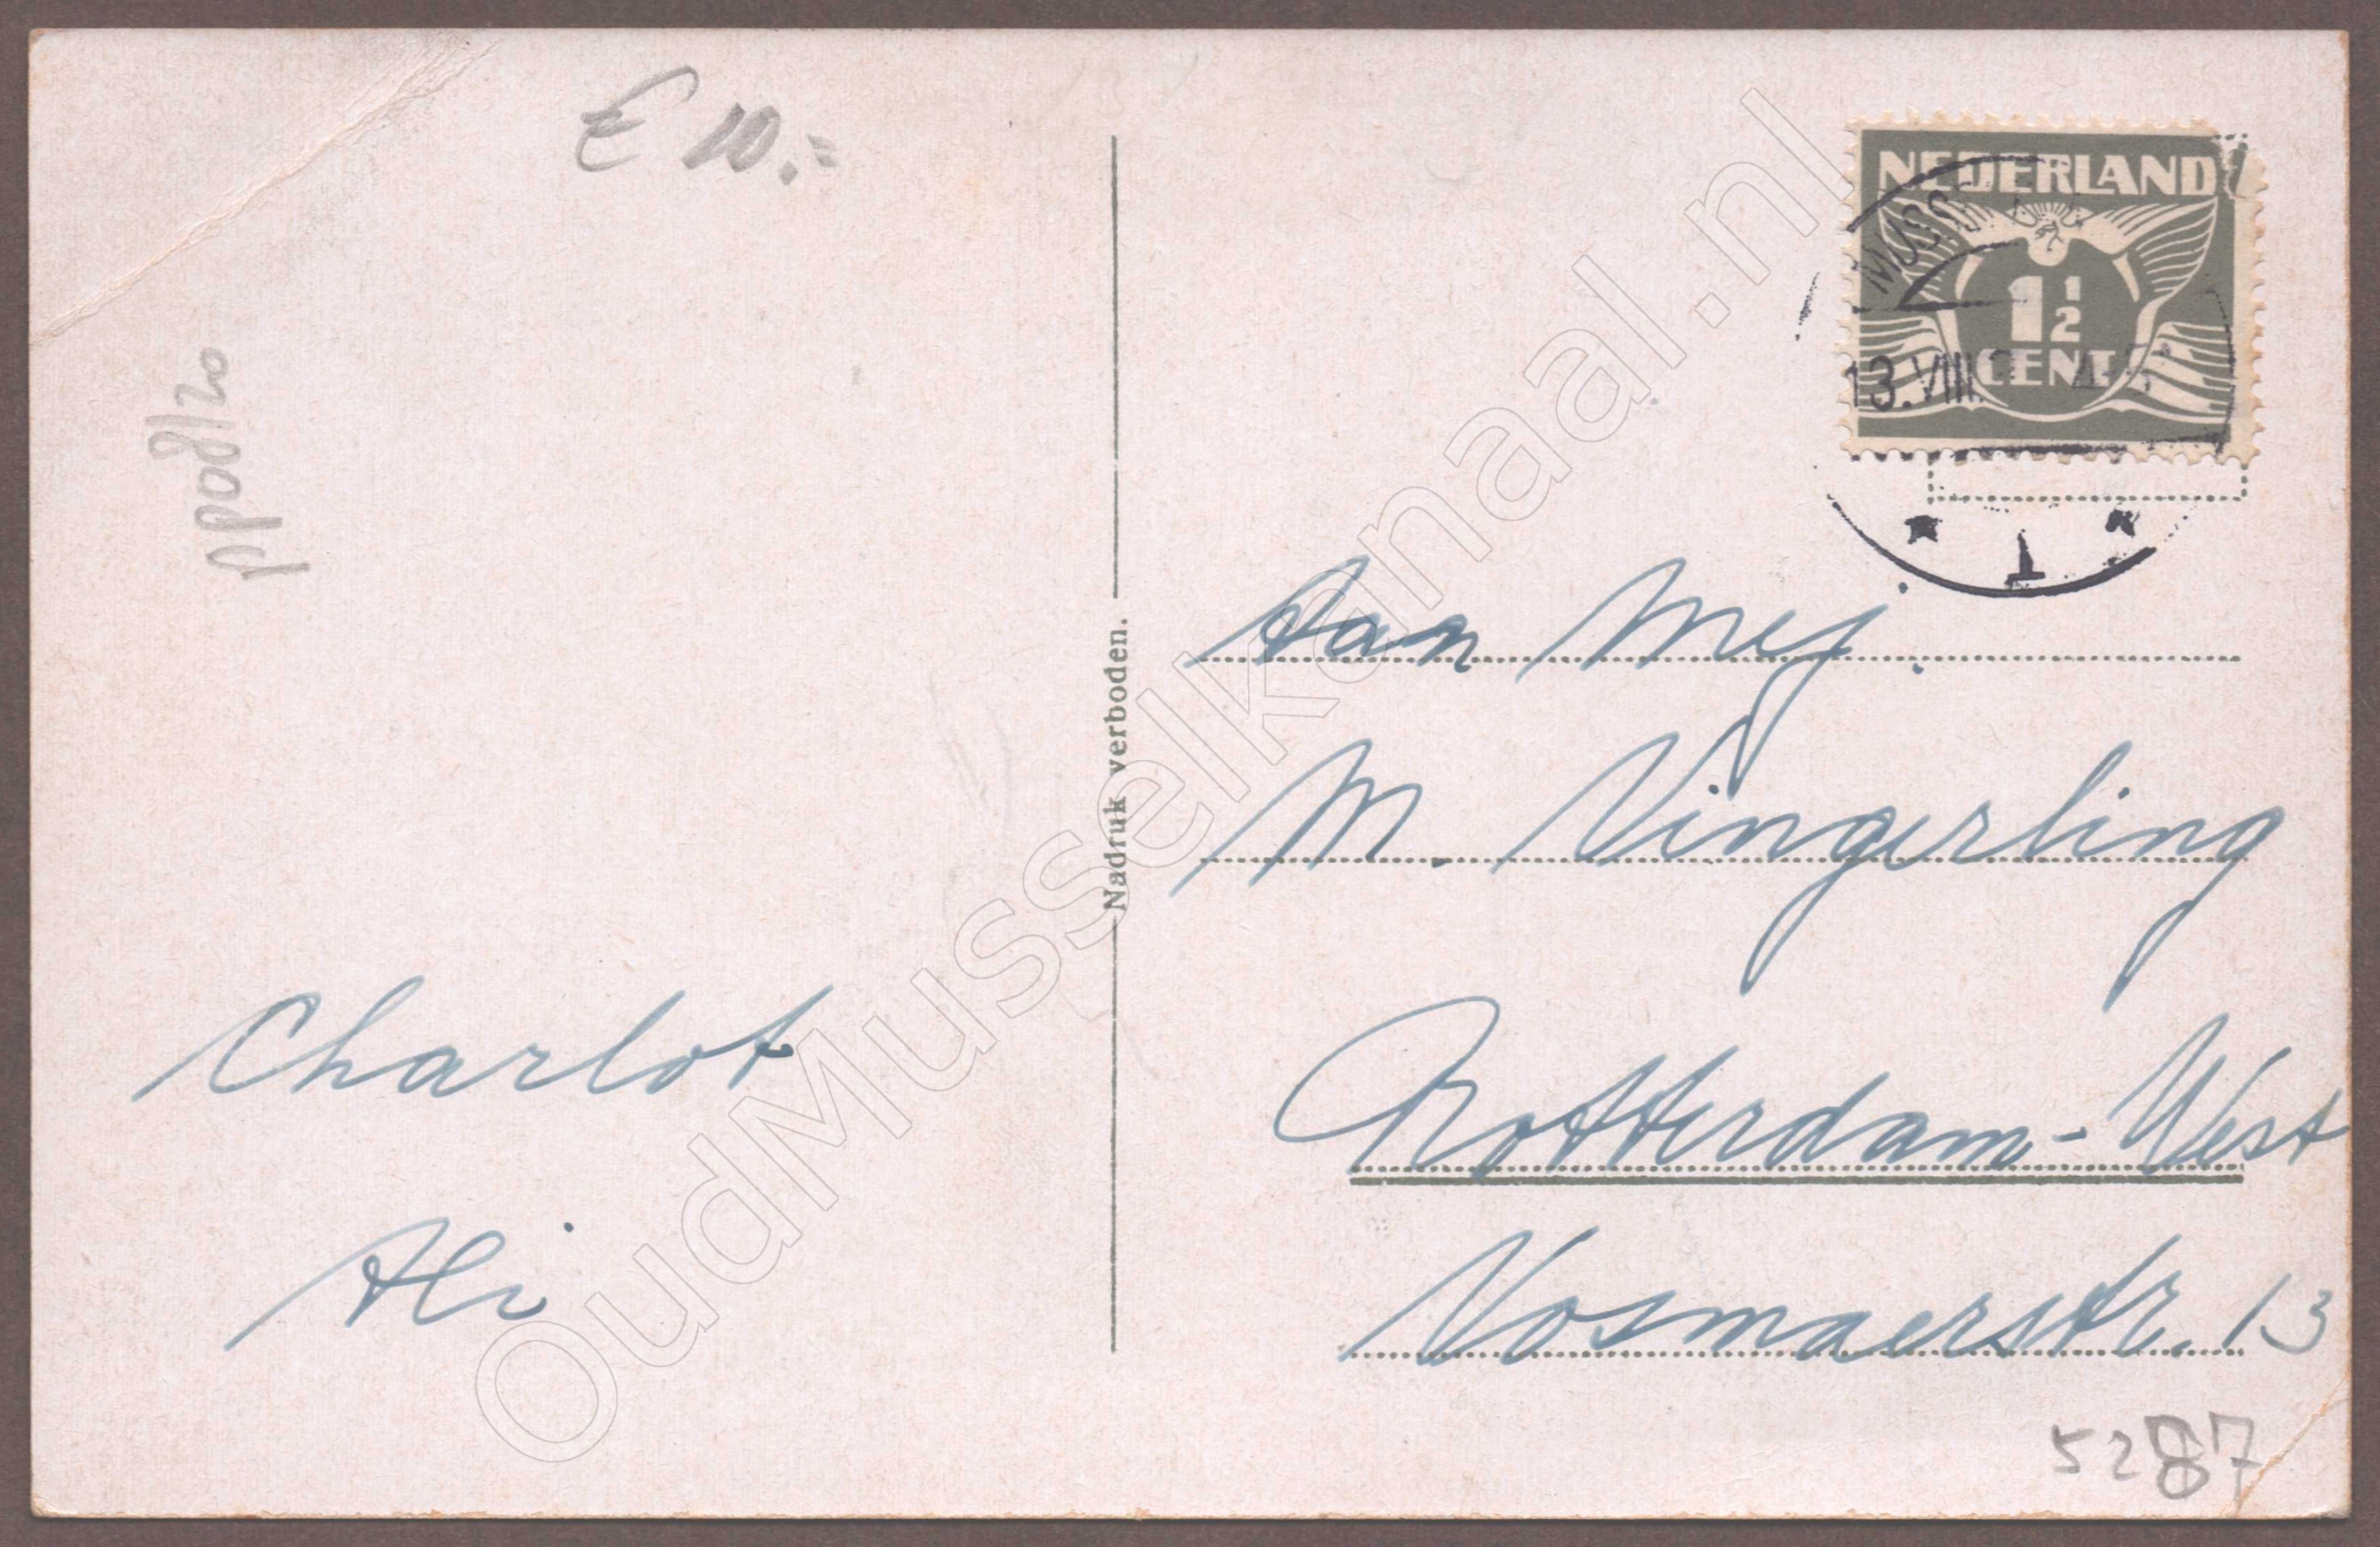 € 10.=
ppod120
NEDERLAND
1 1/2
CENT
13.VIII
1
Nadruk verboden.
Aan Mej.
M. Vingerling
Rotterdam-West
Vosmaerstr. 13
Charlot
Ali
5287
OudMusselkanaal.nl